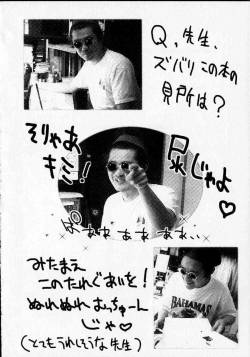 Q. 先生、
ズバリこの本の
見所は?
そりゃあ
キミ!
尻じゃよ♡
みたまえ
このたれぐあいを!
ぬれぬれむっちゅーん
じゃ♡
BAHAMAS
(とてもうれしそうな先生)